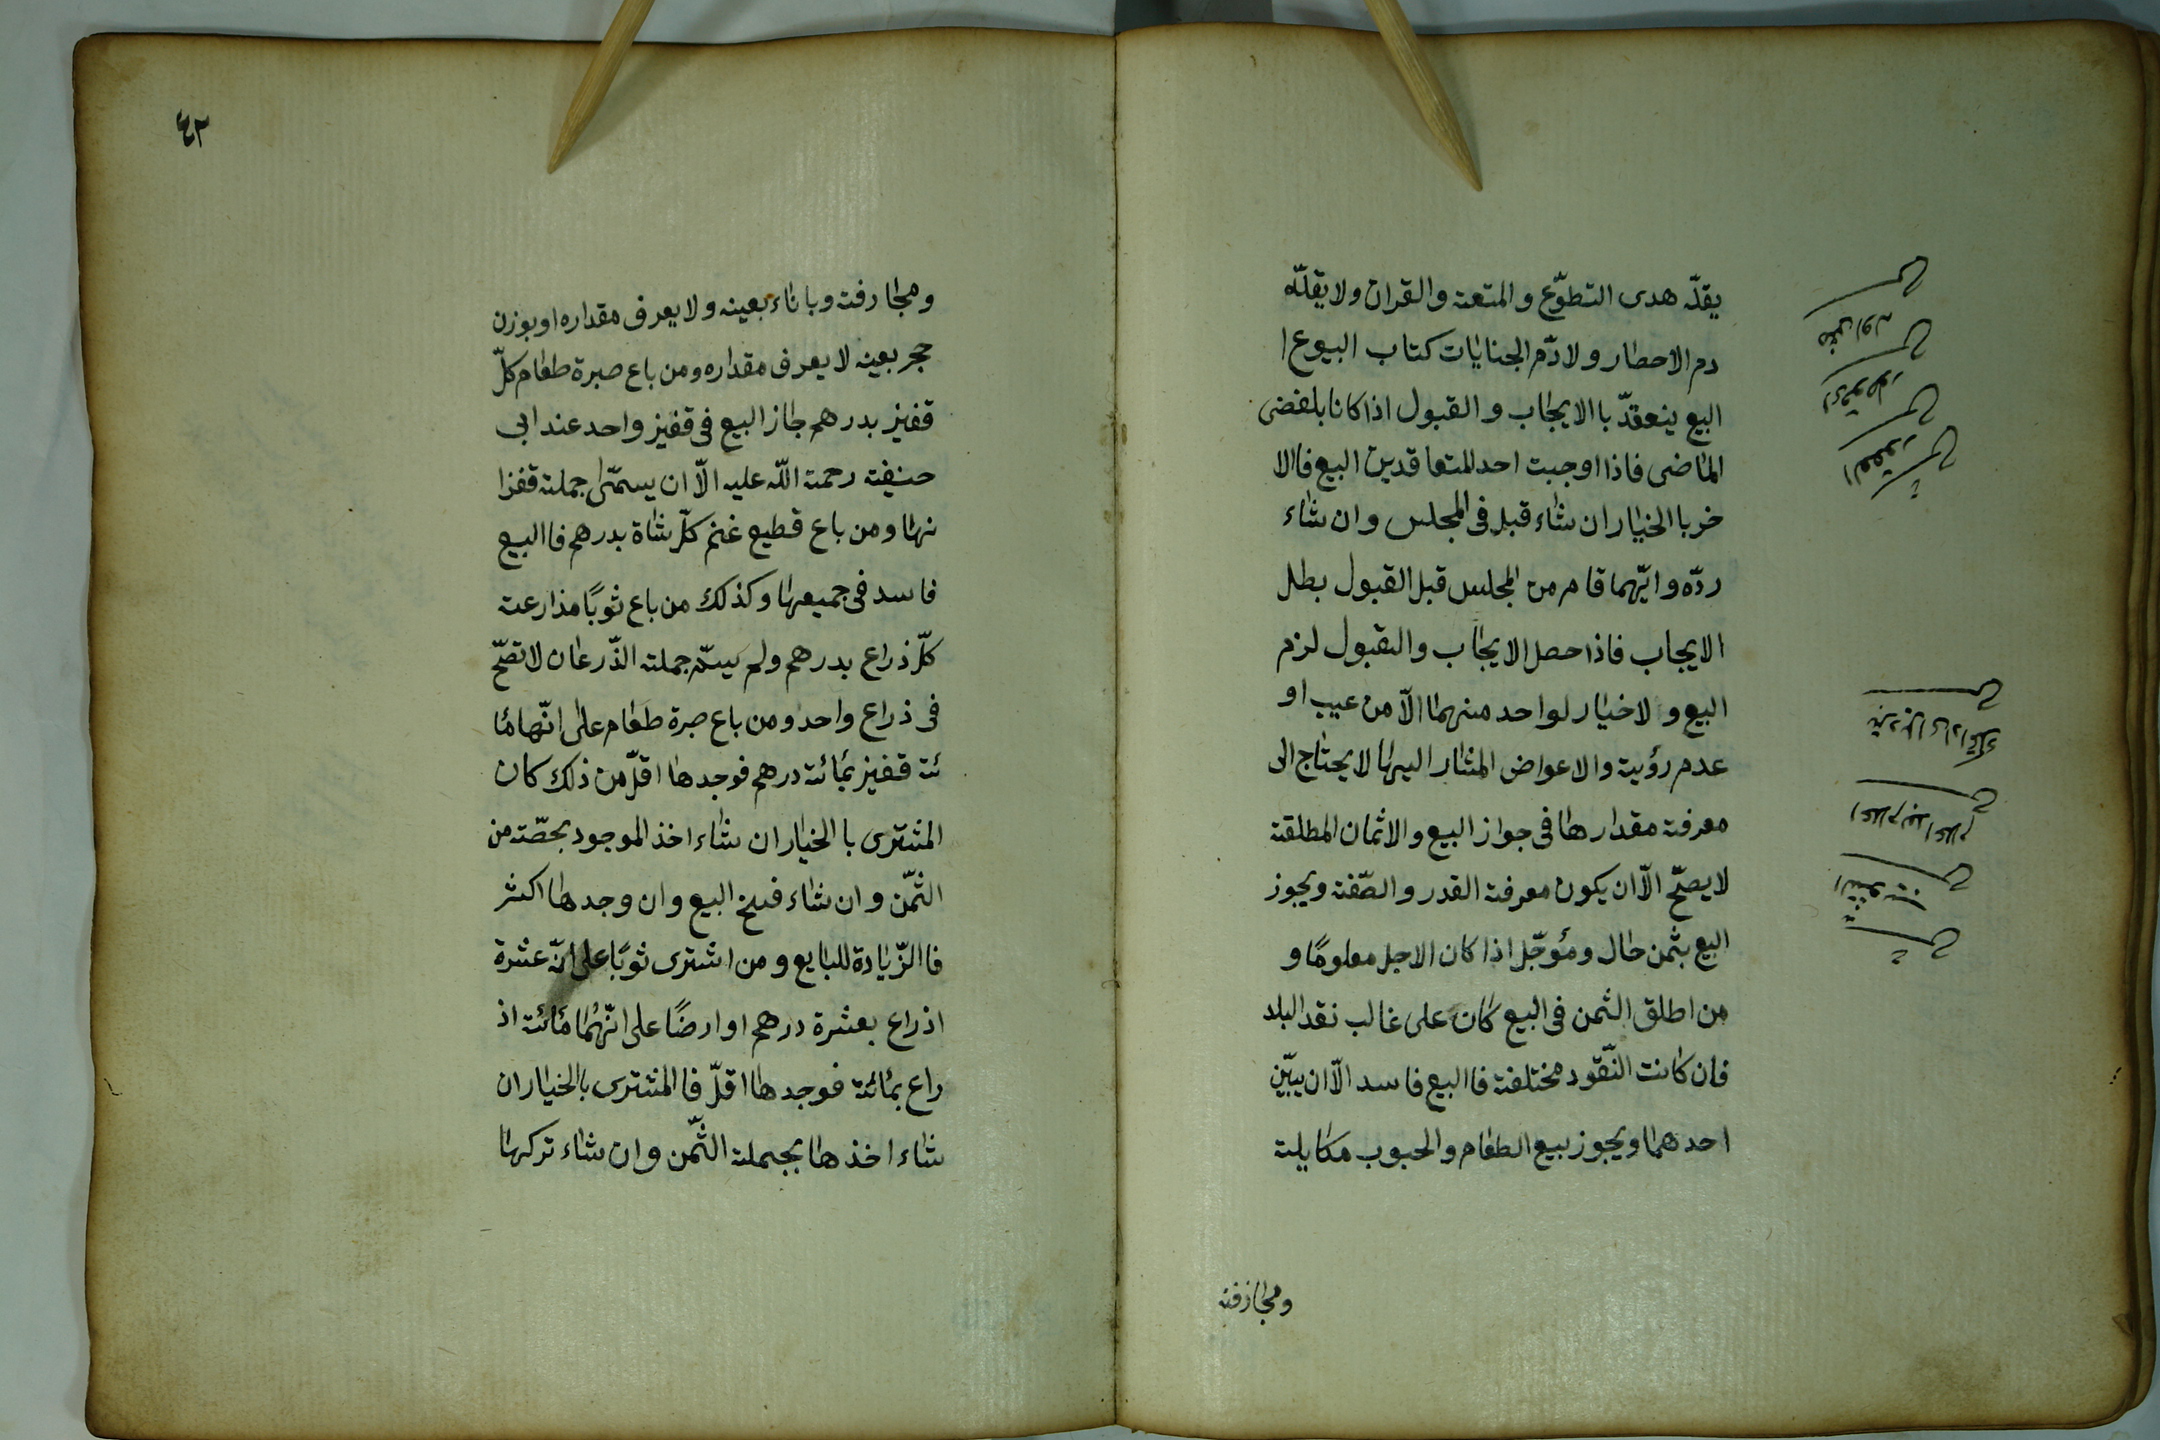 يقلّد هدى التطوّع والمتعة والقران ولا يقلّد
دم الاحطار ولا دّم الجنايات كتاب البيوع ا
البيع ينعقدّ با الايجاب و القبول اذا كانا بلفضى
الماضى فاذا اوجبت احد المتعاقدين البيع فاالا
خر با الخيار ان شاء قبل فى المجلس وان شاء
ردّه وايّهما قام من المجلس قبل القبول بطل
الايجاب فاذا حصل الايجاب والقبول لزم
البيع و لاخيار لواحد منهما الاّ من عيب او
عدم رؤية والاعواض المشار اليها لا يحتاج الى
معرفة مقدارها فى جواز البيع والاثمان المطلقة
لا يصحّ الاّ ان يكون معرفة القدر والصّفة ويجوز
البيع بثمن حال ومؤجّل اذا كان الاجل معلومًا و
من اطلق الثمن فى البيع كان على غالب نقد البلد
فان كانت النّقود مختلفة فاالبيع فاسد الاّ ان يبيّن
احدهما ويجوز بيع الطعام والحبوب مكايلة
ومجازفة
٤٢
ومجا رفة وباناء بعينه ولا يعرف مقداره او بوزن
حجر بعينه لا يعرف مقداره ومن باع صبرة طعام كلّ
قفيز بدرهم جاز البيع فى قفيز واحد عند ابى
حنيفة رحمة اللّه عليه الاّ ان يسمّى جملة قفزا
نها ومن باع قطيع غنم كلّ شاة بدرهم فاالبيع
فاسد فى جميعها وكذلك من باع ثوبًا مذارعة
كلّ ذراع بدرهم ولم يسمّ جملة الذّرعان لا تصّح
فى ذراع واحد ومن باع صبرة طعام على انّها مأ
ئة قفيز بمائة درهم فوجدها اقلّ من ذلك كان
المشترى با الخيار ان شاء اخذ الموجود بحصّته من
الثّمن وان شاء فسخ البيع وان وجدها اكثر
فا الزّيادة للبايع ومن اشترى ثوبًا على انّه عشرة
اذراع بعشرة درهم او ارضًا على انّهما مأئة اذ
راع بمائة فوجدها اقلّ فا المشترى با الخيار ان
شاء اخذها بجملة الثّمن وان شاء تركها